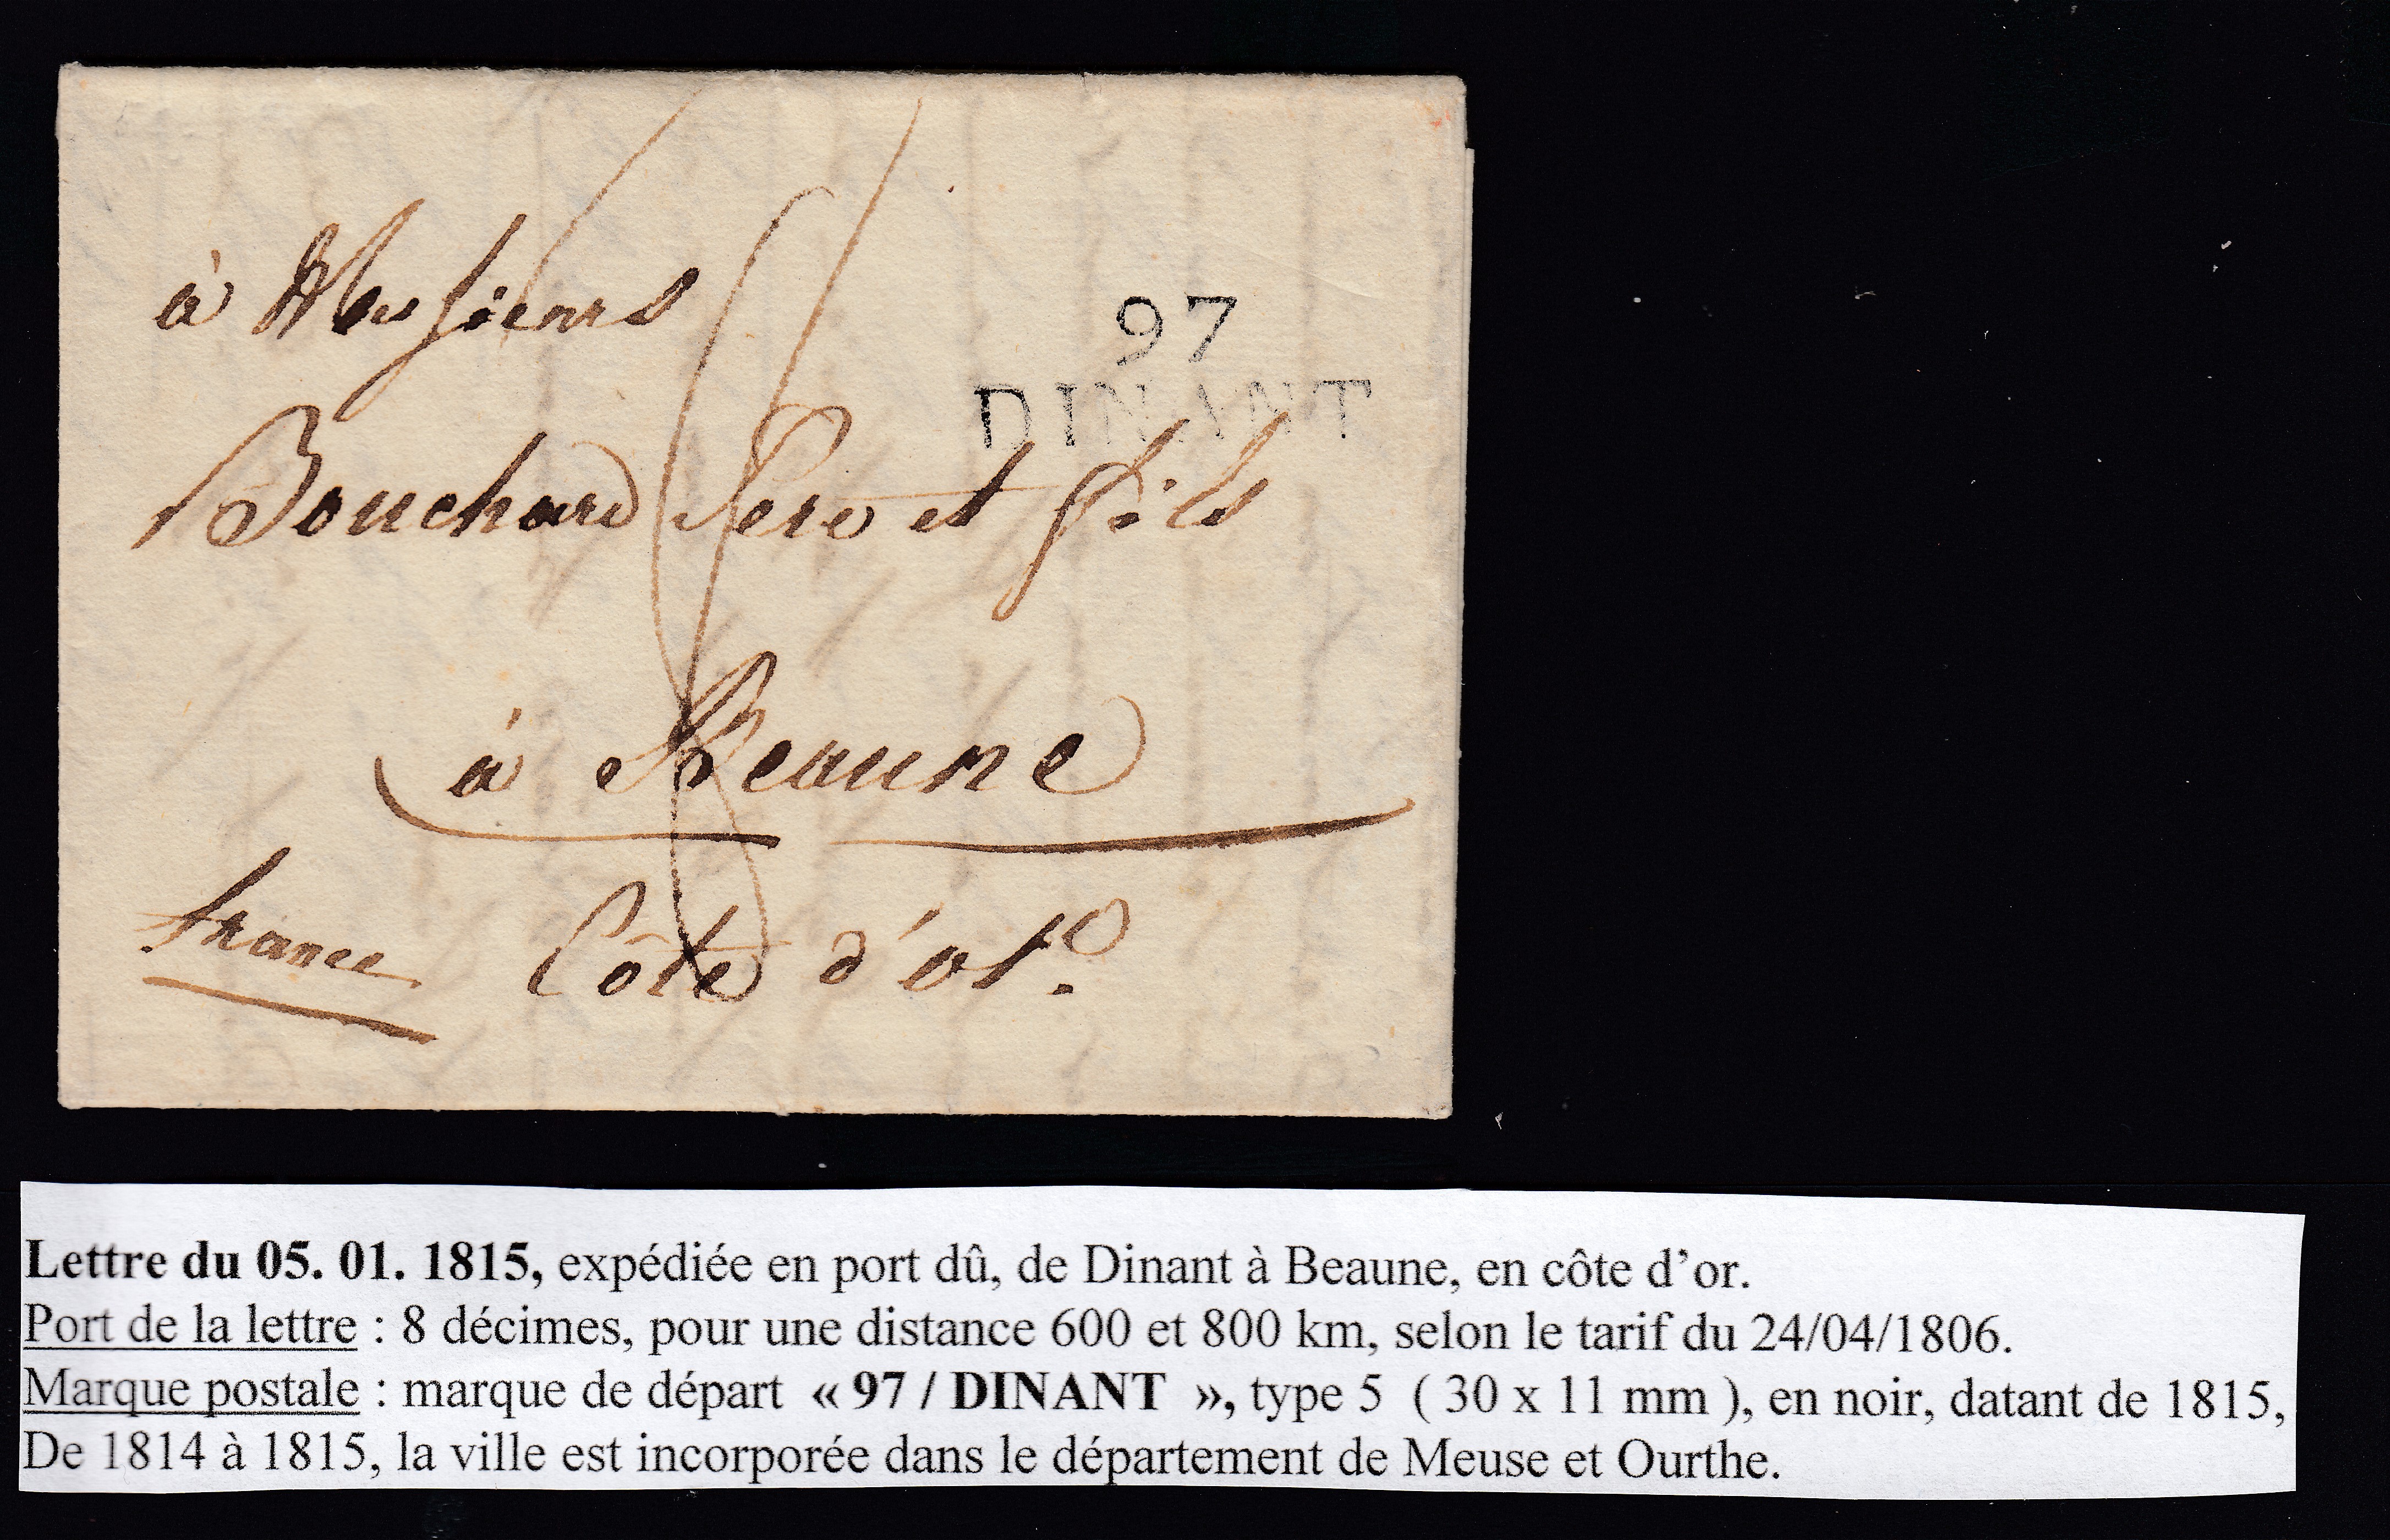 à Messieurs
97
DINANT
Bouchard Pere et fils
à Beaune
france Côte d'or.
Lettre du 05. 01. 1815, expédiée en port dû, de Dinant à Beaune, en côte d’or.
Port de la lettre : 8 décimes, pour une distance 600 et 800 km, selon le tarif du 24/04/1806.
Marque postale : marque de départ « 97 / DINANT », type 5 ( 30 x 11 mm ), en noir, datant de 1815,
De 1814 à 1815, la ville est incorporée dans le département de Meuse et Ourthe.